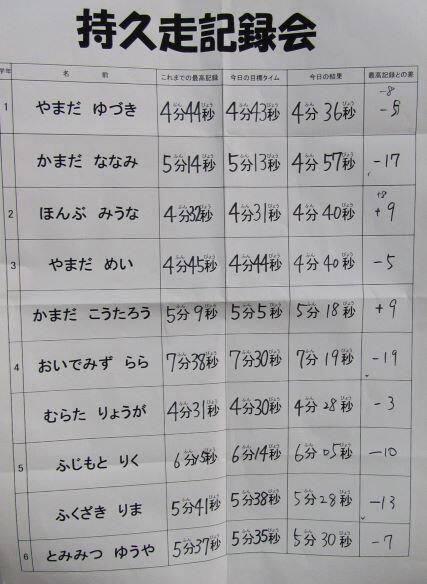 持久走記録会
学年 名前 これまでの最高記録 今日の目標タイム 今日の結果 最高記録との差
1 やまだ ゆづき 4分44秒 4分43秒 4分36秒 -8
かまだ ななみ 5分14秒 5分13秒 4分57秒 -17
2 ほんぶ みうな 4分32秒 4分31秒 4分40秒 +8 +9
3 やまだ めい 4分45秒 4分44秒 4分40秒 -5
かまだ こうたろう 5分9秒 5分5秒 5分18秒 +9
4 おいでみず らら 7分38秒 7分30秒 7分19秒 -19
むらた りょうが 4分31秒 4分30秒 4分28秒 -3
5 ふじもと りく 6分15秒 6分14秒 6分05秒 -10
ふくざき りま 5分41秒 5分38秒 5分28秒 -13
6 とみみつ ゆうや 5分37秒 5分35秒 5分30秒 -7